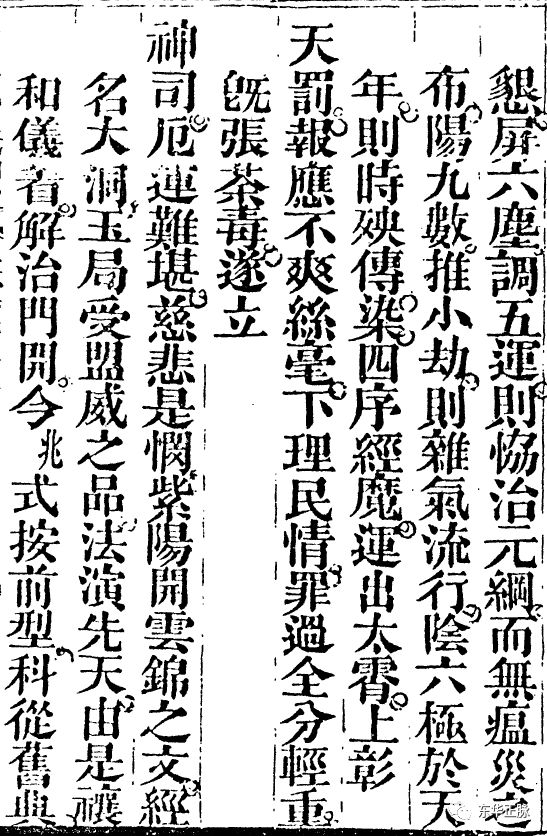 懇屏六塵調五運則恊治元綱而無瘟災之
布陽九數推小劫則雜氣流行陰六極於天
年則時殃傳染四序經魔運出太霄上彰
天罰報應不爽絲毫下理民情罪過全分輕重
旣張荼毒遂立
神司厄運難堪慈悲是憫紫陽開雲錦之文經
名大洞玉局受盟威之品法演先天由是禳
和儀着解治門開今兆式按前型科從舊典
东华正脉